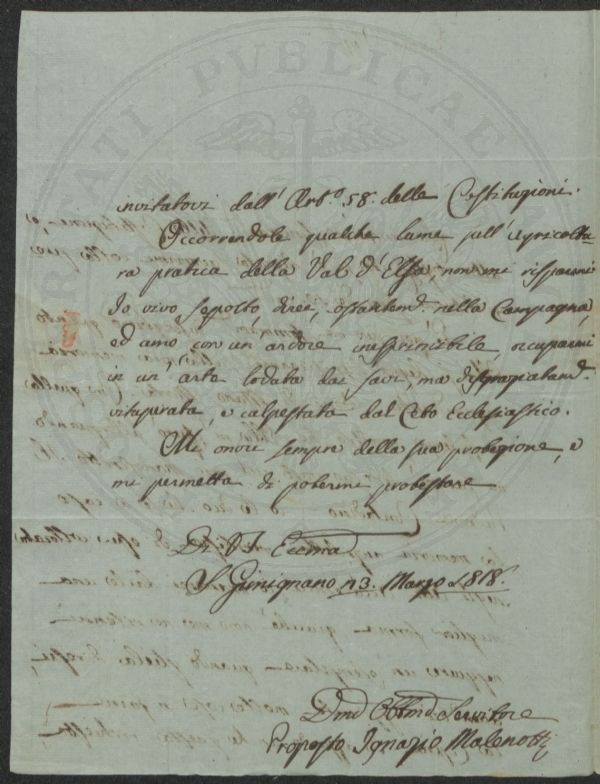 invitatovi dall' Art.º 58. delle Costituzioni.
Occorrendole qualche lume sull' Agricoltu
ra pratica della Val d' Elsa, non mi risparmi
Io vivo sepolto direi, costantemd. nella Campagna,
ed amo con un ardore inesprimibile, occuparmi
in un' arte lodata dai savi, ma disgraziatamd.
vituperata, e calpestata dal Ceto Ecclesiastico.
Mi onori sempre della sua protezione, e
mi permetta di potermi protestare
Di V. S. Eccma
S. Gimignano 13. Marzo 1818.
Dmo Obbmo Servitore
Proposto Ignazio Malenotti